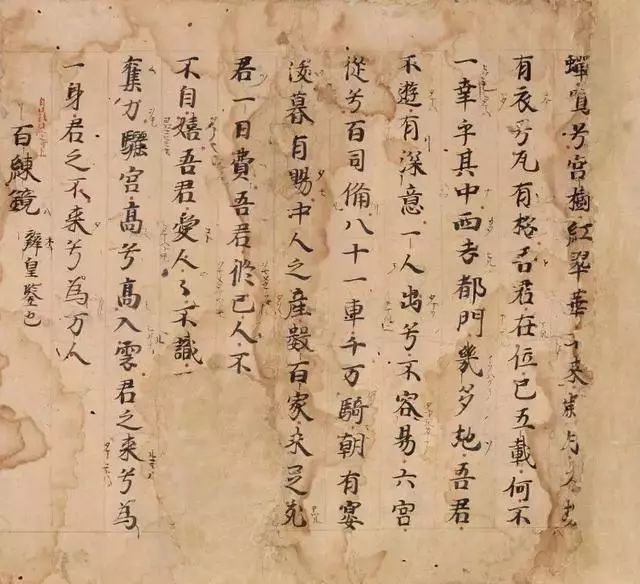 蟬鳴兮宮樹紅翠華不来歲月久
有衣兮瓦有松吾君在位已五載何不
一幸乎其中西去都門幾多地吾君
不遊有深意一人出兮不容易六宮
從兮百司備八十一車千万騎朝有宴
飫暮有賜中人之産數百家未足充
君一日費吾君脩已人不
不自嬉吾君愛人々不識
力驪宮高兮高入雲君之来兮為
一身君之不来兮為万人
百練鏡 辨皇鑒也